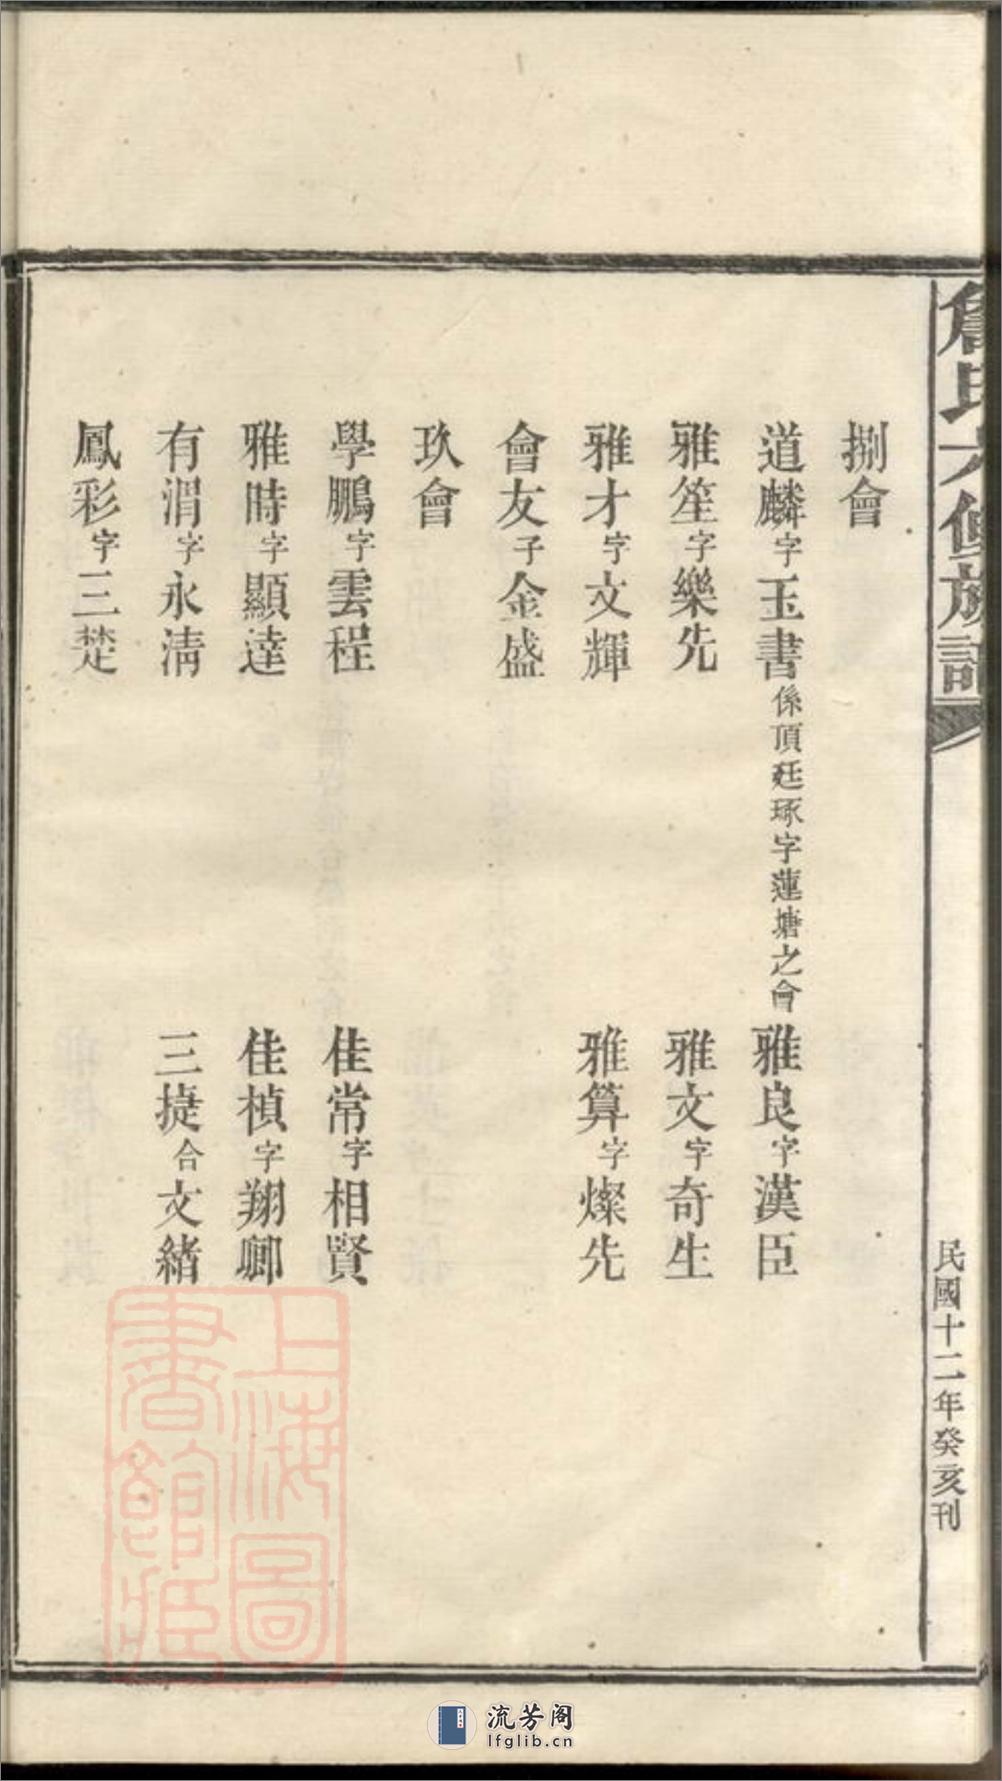 詹氏六修族譜
民國十二年癸亥刊
捌會
道麟字玉書係頂廷琢字蓮塘之會 雅良字漢臣
雅笙字樂先 雅文字奇生
雅才字文輝 雅算字燦先
會友子金盛
玖會
學鵬字雲程 佳常字相賢
雅時字顯達 佳楨字翔卿
有渭字永清 三捷合文緒
鳳彩字三楚
上海圖
書館藏
流芳阁
lfglib.cn